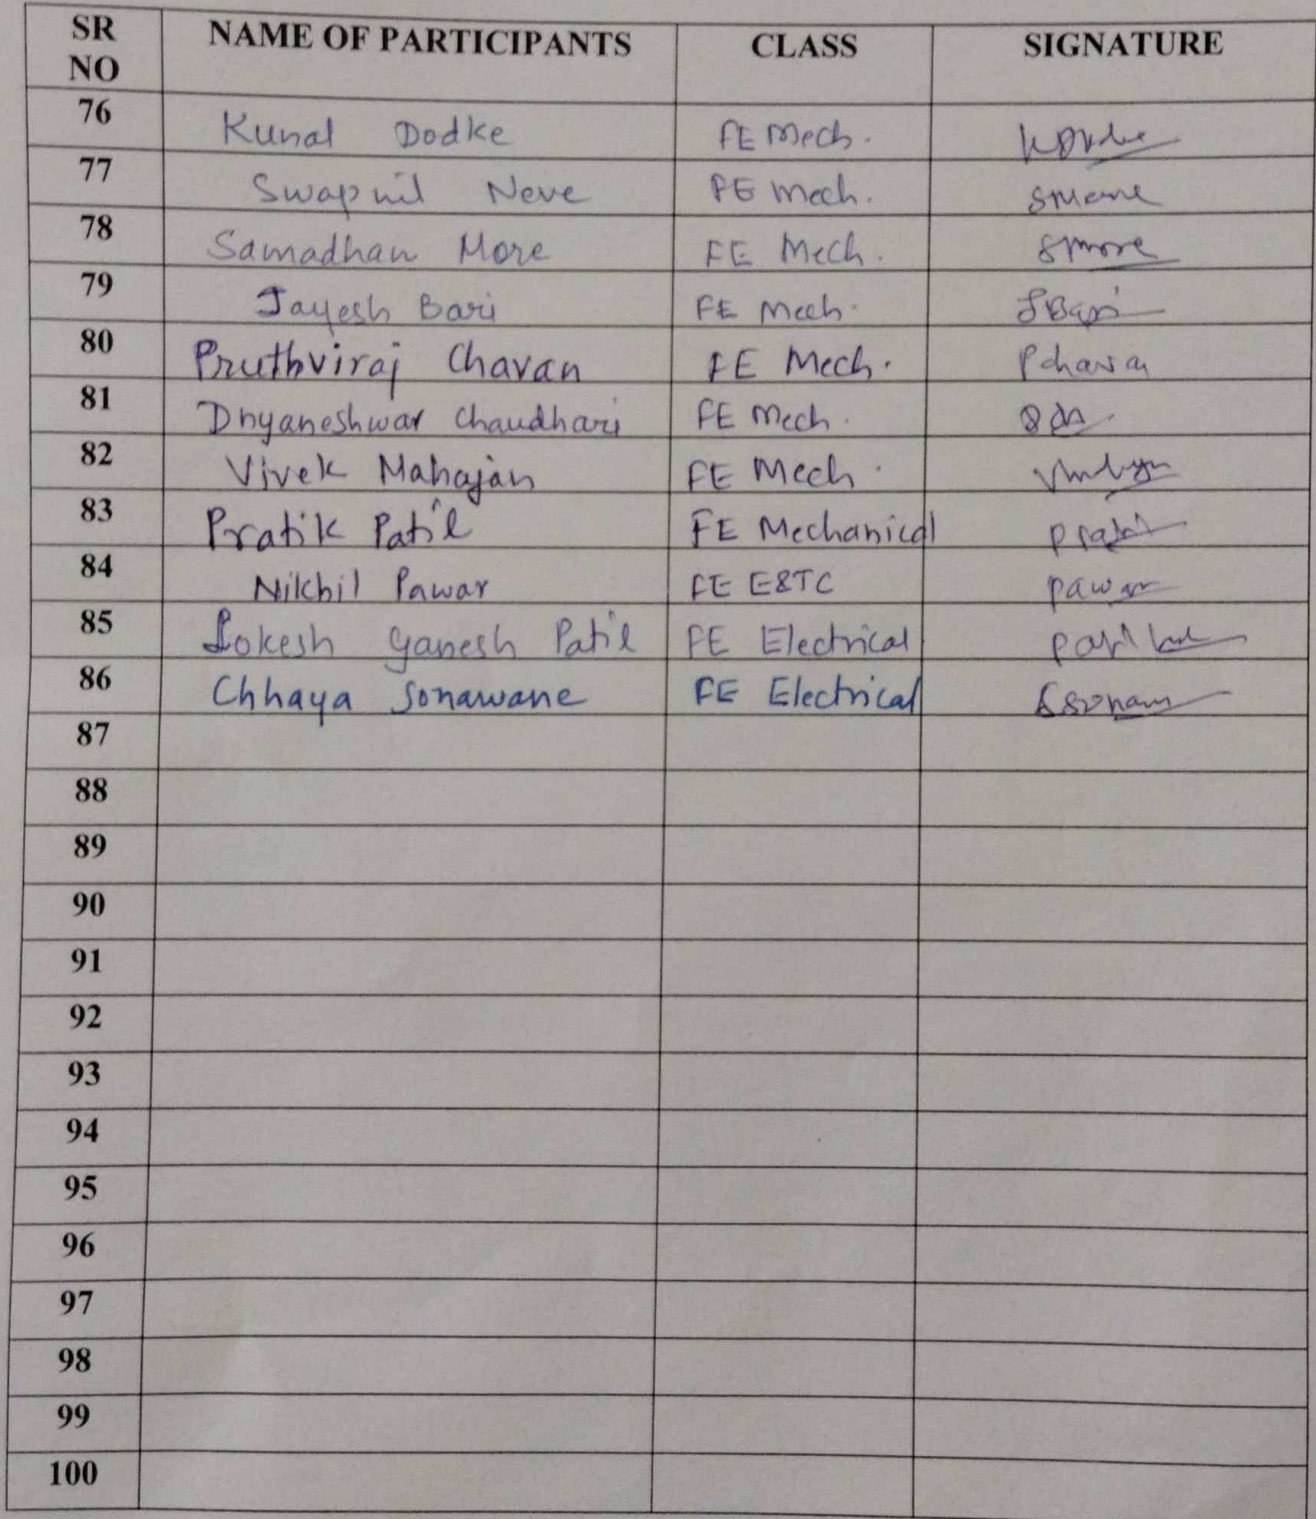 SR NO NAME OF PARTICIPANTS CLASS SIGNATURE
76 Kunal Dodke FE Mech.
77 Swapnil Neve FE Mech.
78 Samadhan More FE Mech. Smore
79 Jayesh Bari FE Mech. JBari
80 Pruthviraj Chavan FE Mech. Pchavan
81 Dnyaneshwar Chaudhari FE Mech.
82 Vivek Mahajan FE Mech.
83 Pratik Patil FE Mechanical
84 Nikhil Pawar FE E&TC Pawar
85 Lokesh Ganesh Patil FE Electrical
86 Chhaya Sonawane FE Electrical
87
88
89
90
91
92
93
94
95
96
97
98
99
100